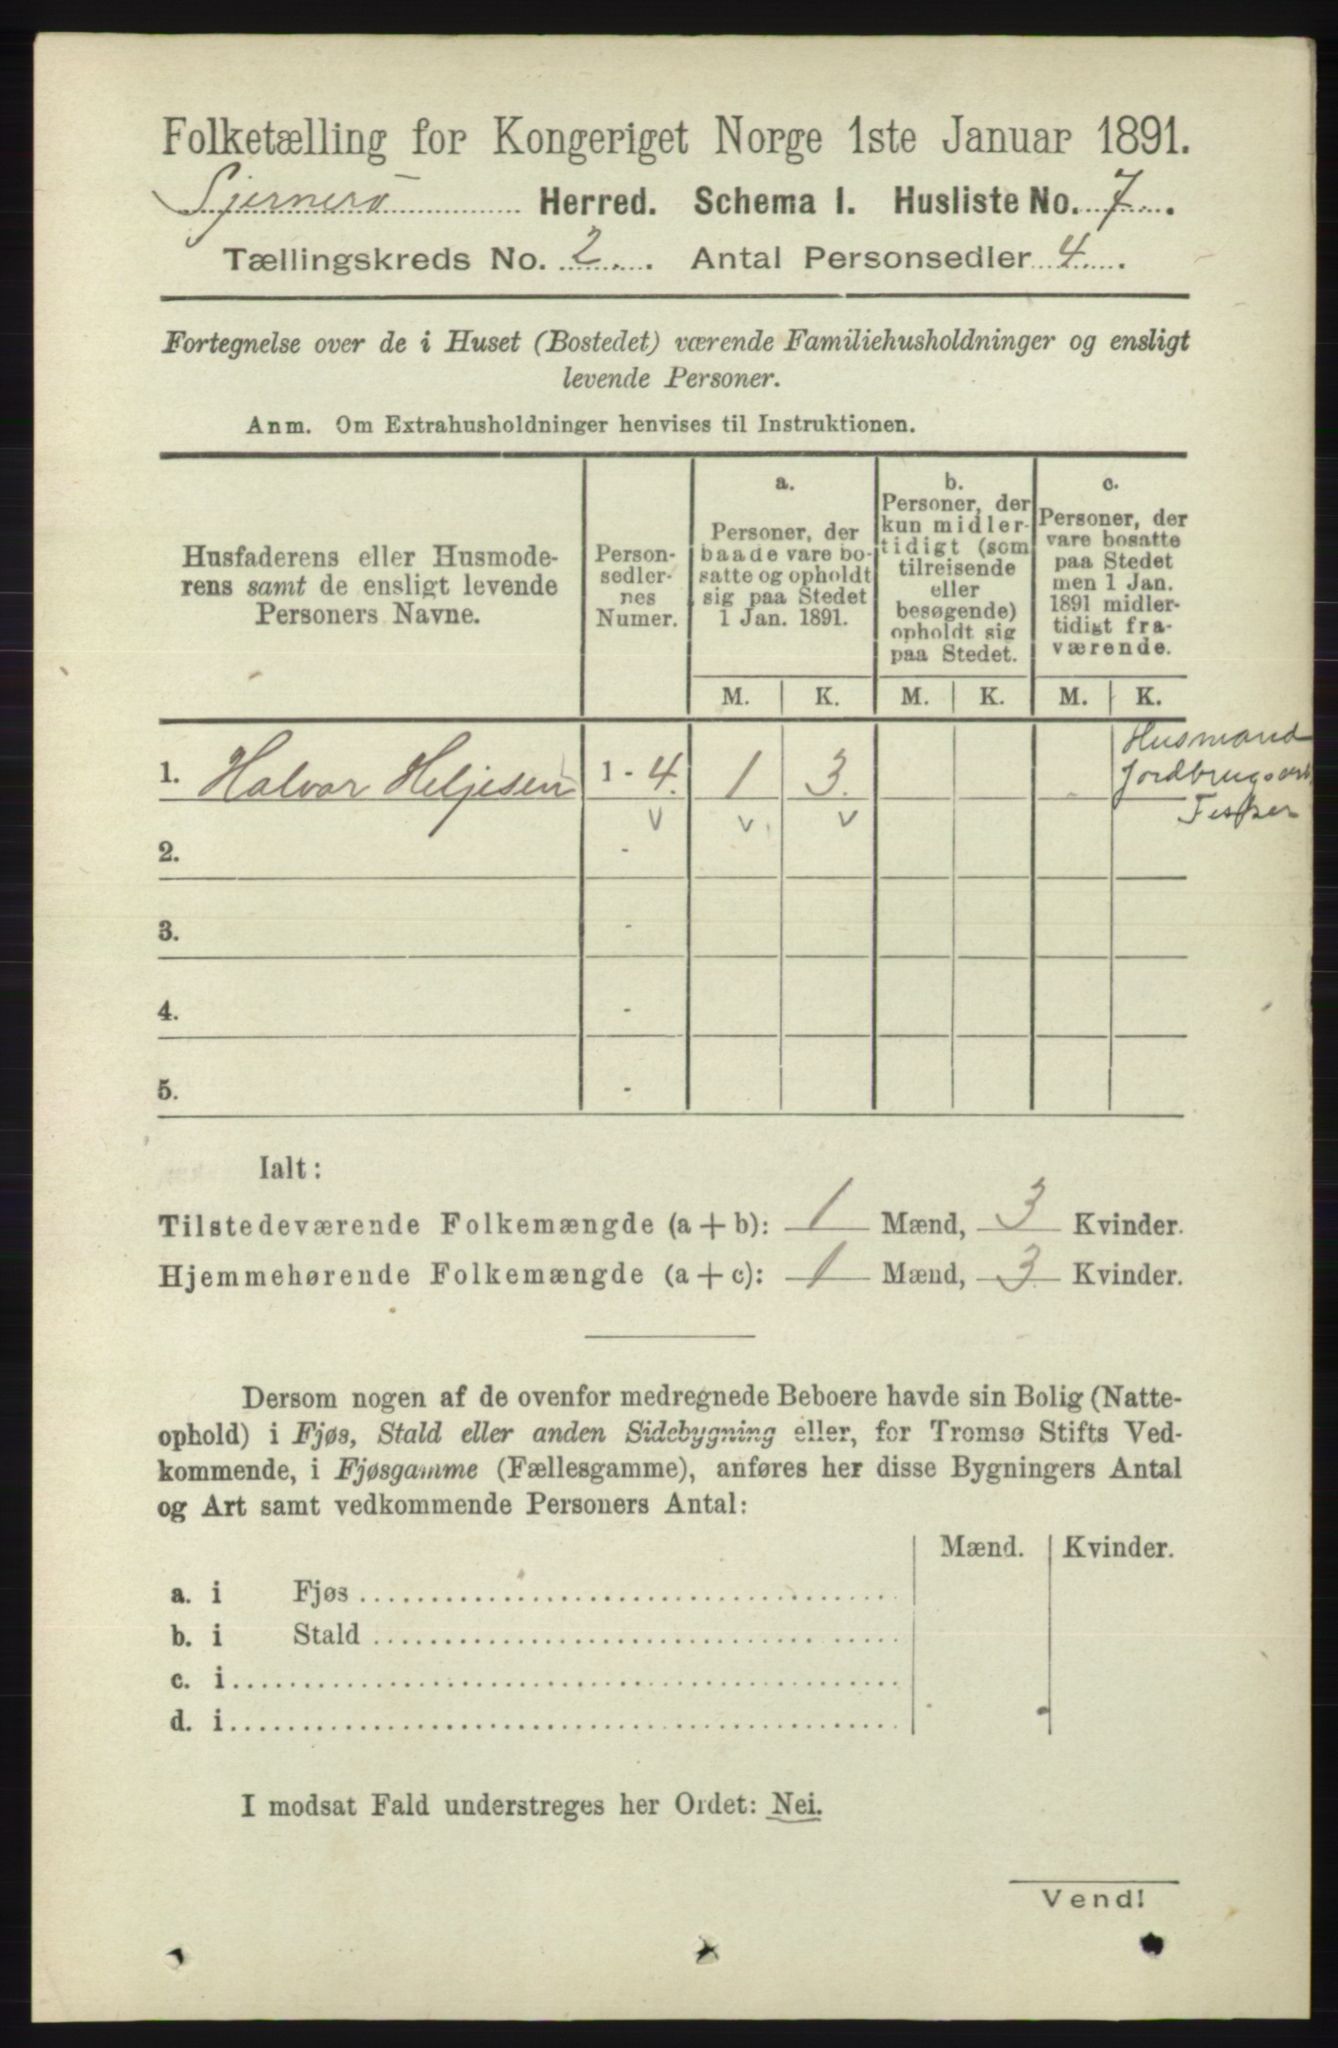 Folketælling for Kongeriget Norge 1ste Januar 1891.
Sjernerö Herred. Schema I. Husliste No. 7.
Tællingskreds No. 2. Antal Personsedler 4.
Fortegnelse over de i Huset (Bostedet) værende Familiehusholdninger og ensligt
levende Personer.
Anm. Om Extrahusholdninger henvises til Instruktionen.
Husfaderens eller Husmode-
rens samt de ensligt levende
Personers Navne.
Person-
sedler-
nes
Numer.
a.
Personer, der
baade vare bo-
satte og opholdt
sig paa Stedet
1 Jan. 1891.
b.
Personer, der
kun midler-
tidigt (som
tilreisende
eller
besøgende)
opholdt sig
paa Stedet.
c.
Personer, der
vare bosatte
paa Stedet
men 1 Jan.
1891 midler-
tidigt fra-
værende.
M. K. M. K. M. K.
1. Halvor Heljesen 1 - 4. 1 3.
Husmand
Jordbrugsarb
Fisker
v v v
2. -
3. -
4. -
5. -
Ialt:
Tilstedeværende Folkemængde (a + b): 1 Mænd, 3 Kvinder.
Hjemmehørende Folkemængde (a + c): 1 Mænd, 3 Kvinder.
Dersom nogen af de ovenfor medregnede Beboere havde sin Bolig (Natte-
ophold) i Fjøs, Stald eller anden Sidebygning eller, for Tromsø Stifts Ved-
kommende, i Fjøsgamme (Fællesgamme), anføres her disse Bygningers Antal
og Art samt vedkommende Personers Antal:
Mænd. Kvinder.
a. i Fjøs
b. i Stald
c. i
d. i
I modsat Fald understreges her Ordet: Nei.
Vend!